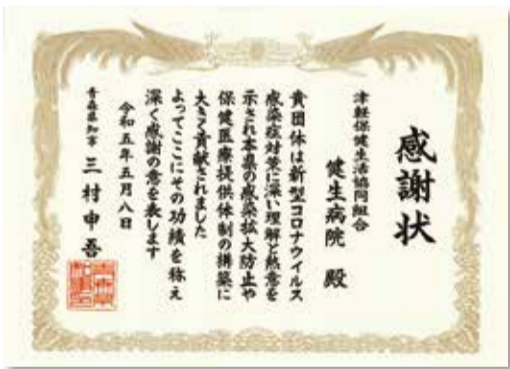 感謝状
津軽保健生活協同組合
健生病院 殿
貴団体は新型コロナウイルス
感染症対策に深い理解と熱意を
示され本県の感染拡大防止や
保健医療提供体制の構築に
大きく貢献されました
よってここにその功績を称え
深く感謝の意を表します
令和五年五月八日
青森県知事 三村申吾